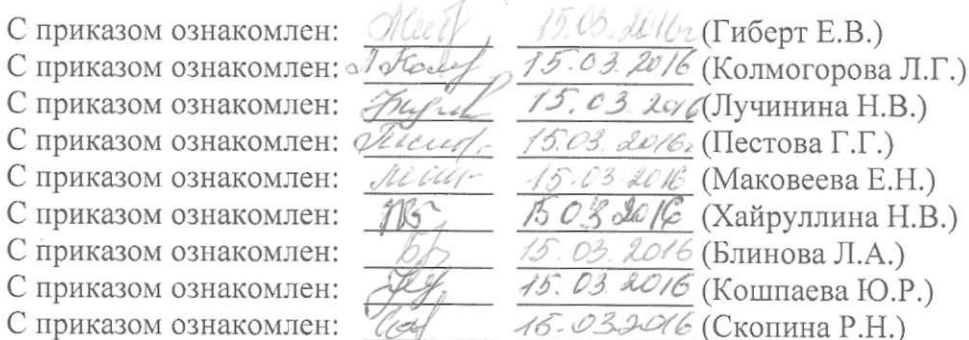 С приказом ознакомлен: 15.03.2016г (Гиберт Е.В.)
С приказом ознакомлен: 15.03.2016 (Колмогорова Л.Г.)
С приказом ознакомлен: 15.03.2016 (Лучинина Н.В.)
С приказом ознакомлен: 15.03.2016г (Пестова Г.Г.)
С приказом ознакомлен: 15.03.2016 (Маковеева Е.Н.)
С приказом ознакомлен: 15 03 2016 (Хайруллина Н.В.)
С приказом ознакомлен: 15.03.2016 (Блинова Л.А.)
С приказом ознакомлен: 15.03.2016 (Кошпаева Ю.Р.)
С приказом ознакомлен: 15.03.2016 (Скопина Р.Н.)